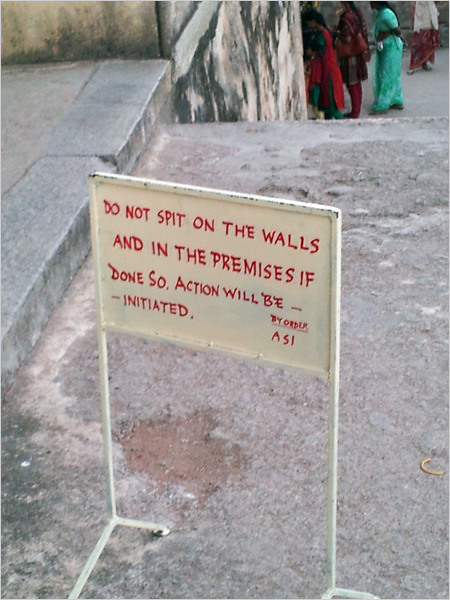 DO NOT SPIT ON THE WALLS
AND IN THE PREMISES IF
DONE SO. ACTION WILL BE -
- INITIATED.
BY ORDER.
ASI